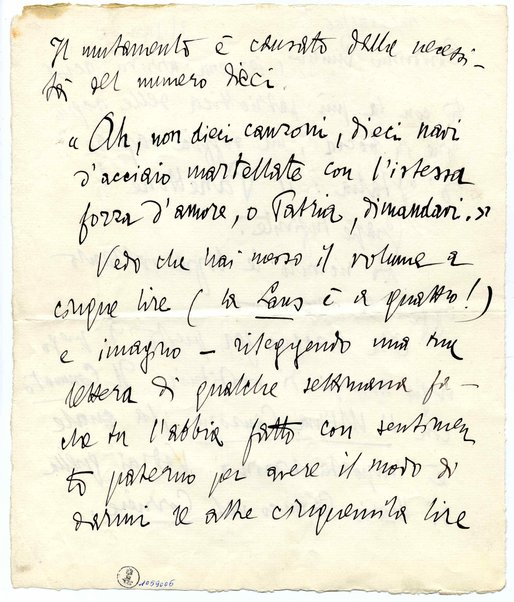 Il mutamento è causato dalla necessi-
tà del numero dieci.
« Ah, non dieci canzoni, dieci navi
d'acciaio martellate con l'istessa
forza d'amore, o Patria, dimandavi. »
Vedo che hai messo il volume a
cinque lire (la Laus è a quattro!)
e imagino – rileggendo una tua
lettera di qualche settimana fa –
che tu l'abbia fatto con sentimen
to paterno per avere il modo di
darmi le altre cinquemila lire
1059006